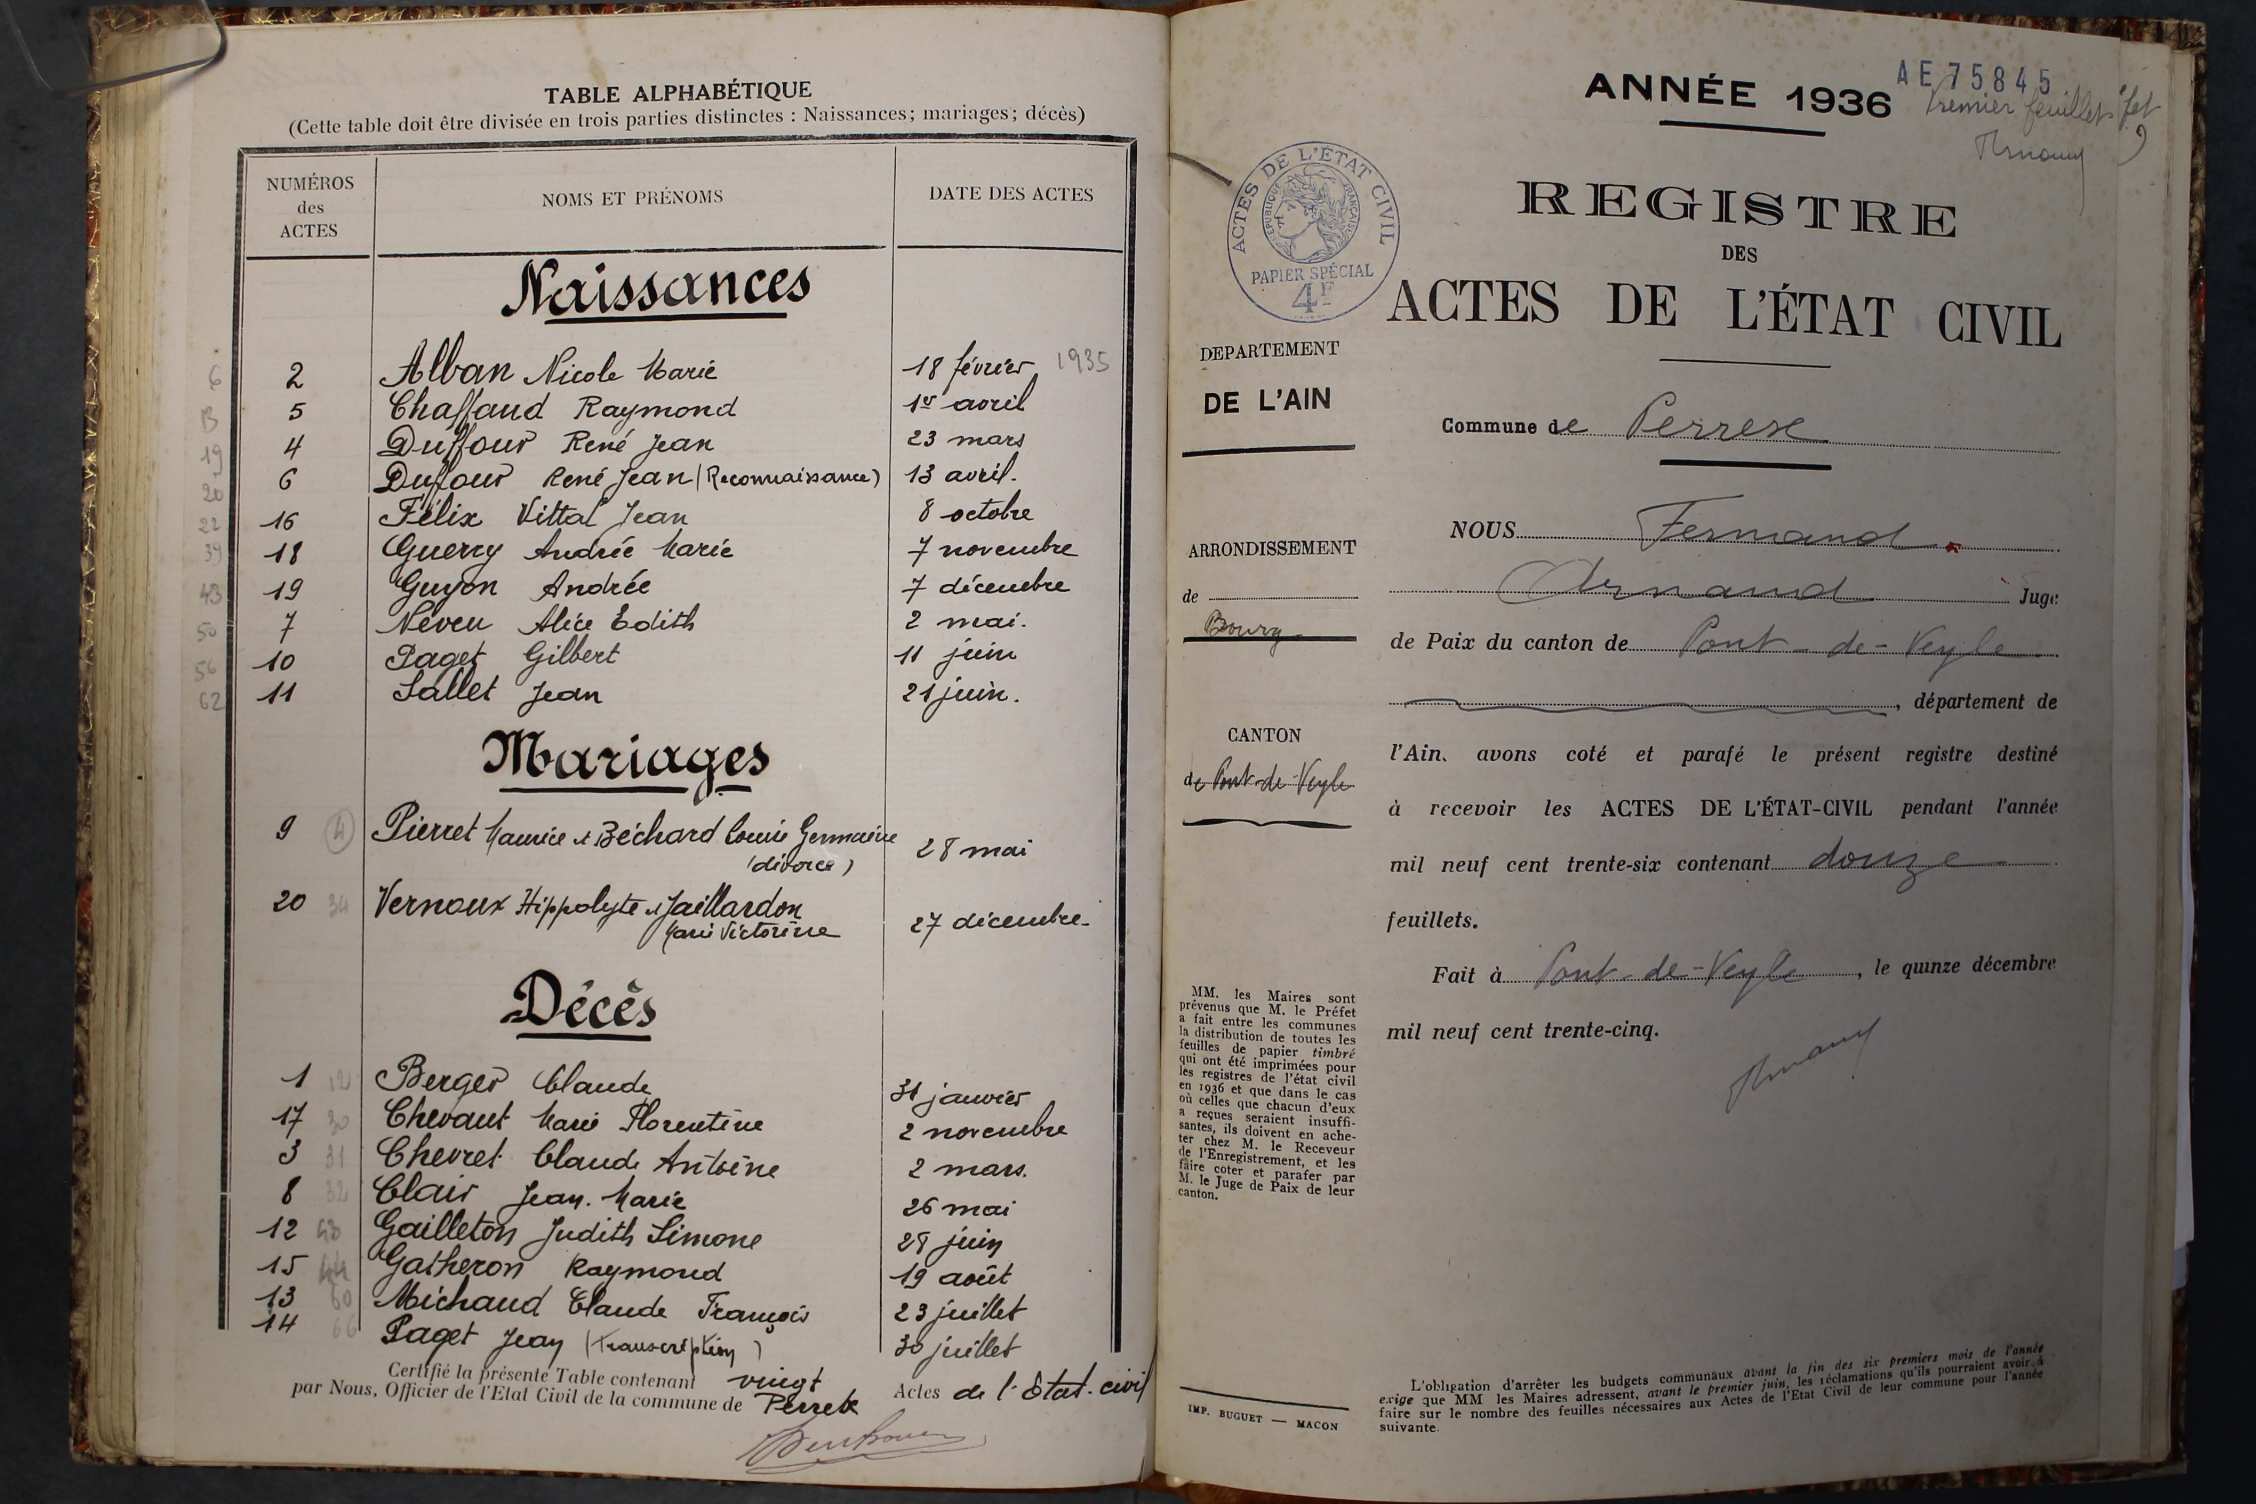 TABLE ALPHABÉTIQUE
(Cette table doit être divisée en trois parties distinctes : Naissances; mariages; décès)
NUMÉROS
des
ACTES
NOMS ET PRÉNOMS
DATE DES ACTES
Naissances
6 2 Alban Nicole Marie 18 février 1935
13 5 Chaffaud Raymond 1er avril
19 4 Duffour René Jean 23 mars
20 6 Duffour René Jean (Reconnaissance) 13 avril.
22 16 Félix Vittal Jean 8 octobre
39 18 Guerry Andrée Marie 7 novembre
43 19 Guyon Andrée 7 décembre
50 7 Neveu Alice Edith 2 mai.
56 10 Paget Gilbert 11 juin
62 11 Sallet Jean 21 juin.
Mariages
9 (4) Pierret Maurice et Béchard Louise Germaine 28 mai
(divorce)
20 34 Vernoux Hippolyte et Jaillardon 27 décembre-
Marie Victorine
Décès
1 12 Berger Claude 31 janvier
17 30 Chevaut Marie Florentine 2 novembre
3 31 Chevret Claude Antoine 2 mars.
8 32 Clair Jean. Marie 26 mai
12 43 Gailleton Judith Simone 28 juin
15 44 Gatheron Raymond 19 août
13 60 Michaud Claude François 23 juillet
14 66 Paget Jean (transcription) 30 juillet
Certifié la présente Table contenant vingt Actes de l'Etat-civil
par Nous, Officier de l'Etat Civil de la commune de Perrex
ANNÉE 1936
AE 75845
Premier feuillet
REGISTRE
DES
ACTES DE L'ÉTAT CIVIL
ACTES DE L'ÉTAT CIVIL
RÉPUBLIQUE FRANÇAISE
PAPIER SPÉCIAL
4F
DEPARTEMENT
DE L'AIN
Commune de Perrex
ARRONDISSEMENT
de
Bourg
CANTON
de Pont-de-Veyle
NOUS Fernand
Arnaud Juge
de Paix du canton de Pont-de-Veyle
, département de
l'Ain, avons coté et parafé le présent registre destiné
à recevoir les ACTES DE L'ÉTAT-CIVIL pendant l'année
mil neuf cent trente-six contenant douze
feuillets.
Fait à Pont-de-Veyle, le quinze décembre
mil neuf cent trente-cinq.
MM. les Maires sont
prévenus que M. le Préfet
a fait entre les communes
la distribution de toutes les
feuilles de papier timbré
qui ont été imprimées pour
les registres de l'état civil
en 1936 et que dans le cas
où celles que chacun d'eux
a reçues seraient insuffi-
santes, ils doivent en ache-
ter chez M. le Receveur
de l'Enregistrement, et les
faire coter et parafer par
M. le Juge de Paix de leur
canton.
IMP. BUGUET — MACON
L'obligation d'arrêter les budgets communaux avant la fin des six premiers mois de l'année
exige que MM les Maires adressent, avant le premier juin, les réclamations qu'ils pourraient avoir à
faire sur le nombre des feuilles nécessaires aux Actes de l'Etat Civil de leur commune pour l'année
suivante.